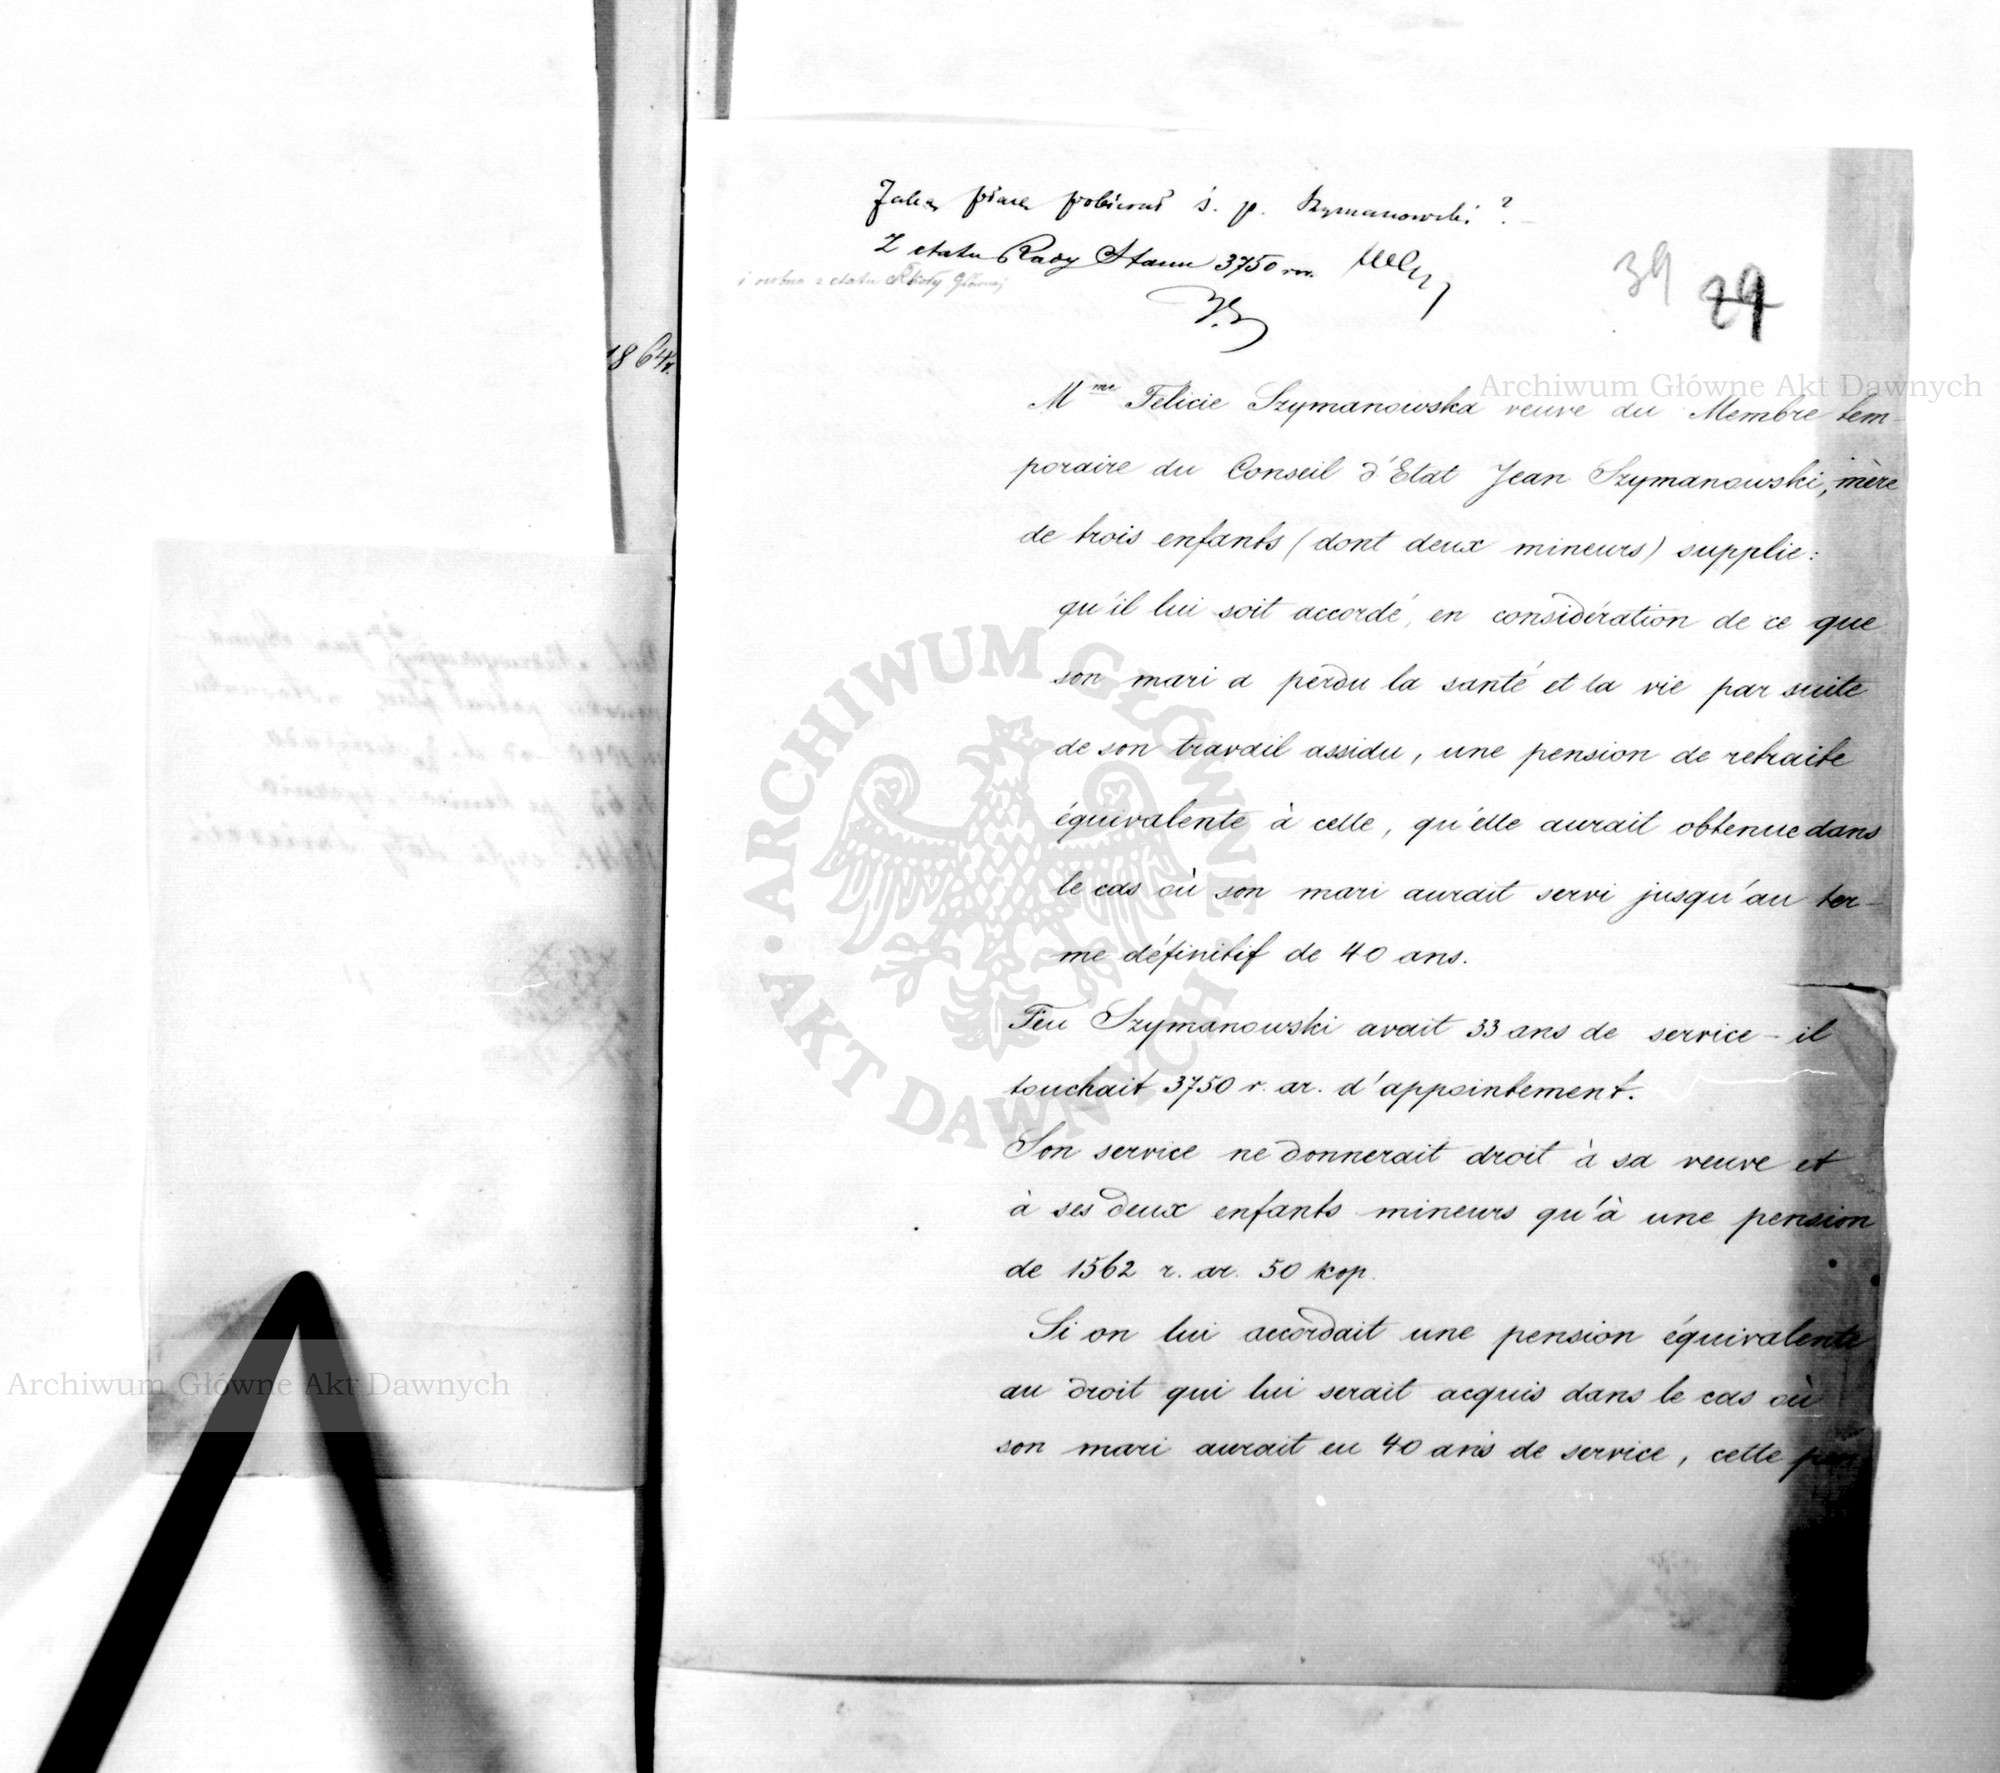 Jaką płacę pobierał ś. p. Szymanowski?
Z etatu Rady Stanu 3750 rsr.
i osobno z etatu Szkoły Głównej
39 29
1864r.
Mme Felicie Szymanowska veuve du Membre tem-
poraire du Conseil d'Etat Jean Szymanowski, mère
de trois enfants (dont deux mineurs) supplie:
qu'il lui soit accordé, en considération de ce que
son mari a perdu la santé et la vie par suite
de son travail assidu, une pension de retraite
équivalente à celle, qu'elle aurait obtenue dans
le cas où son mari aurait servi jusqu'au ter-
me définitif de 40 ans.
Feu Szymanowski avait 33 ans de service - il
touchait 3750 r. ar. d'appointement.
Son service ne donnerait droit à sa veuve et
à ses deux enfants mineurs qu'à une pension
de 1562 r. ar. 50 kop.
Si on lui accordait une pension équivalente
au droit qui lui serait acquis dans le cas où
son mari aurait eu 40 ans de service, cette pen
Archiwum Główne Akt Dawnych
ARCHIWUM GŁÓWNE AKT DAWNYCH
Archiwum Główne Akt Dawnych